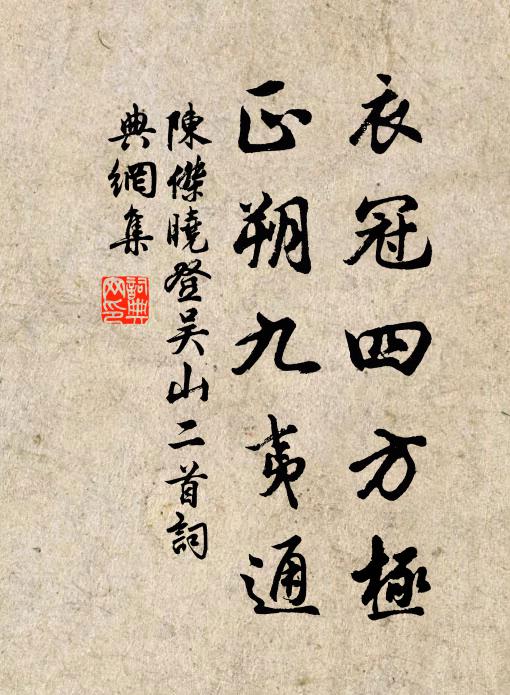 衣冠四方極
正朔九夷通
陳傑曉登吳山二首詞
典網集
詞典
网印